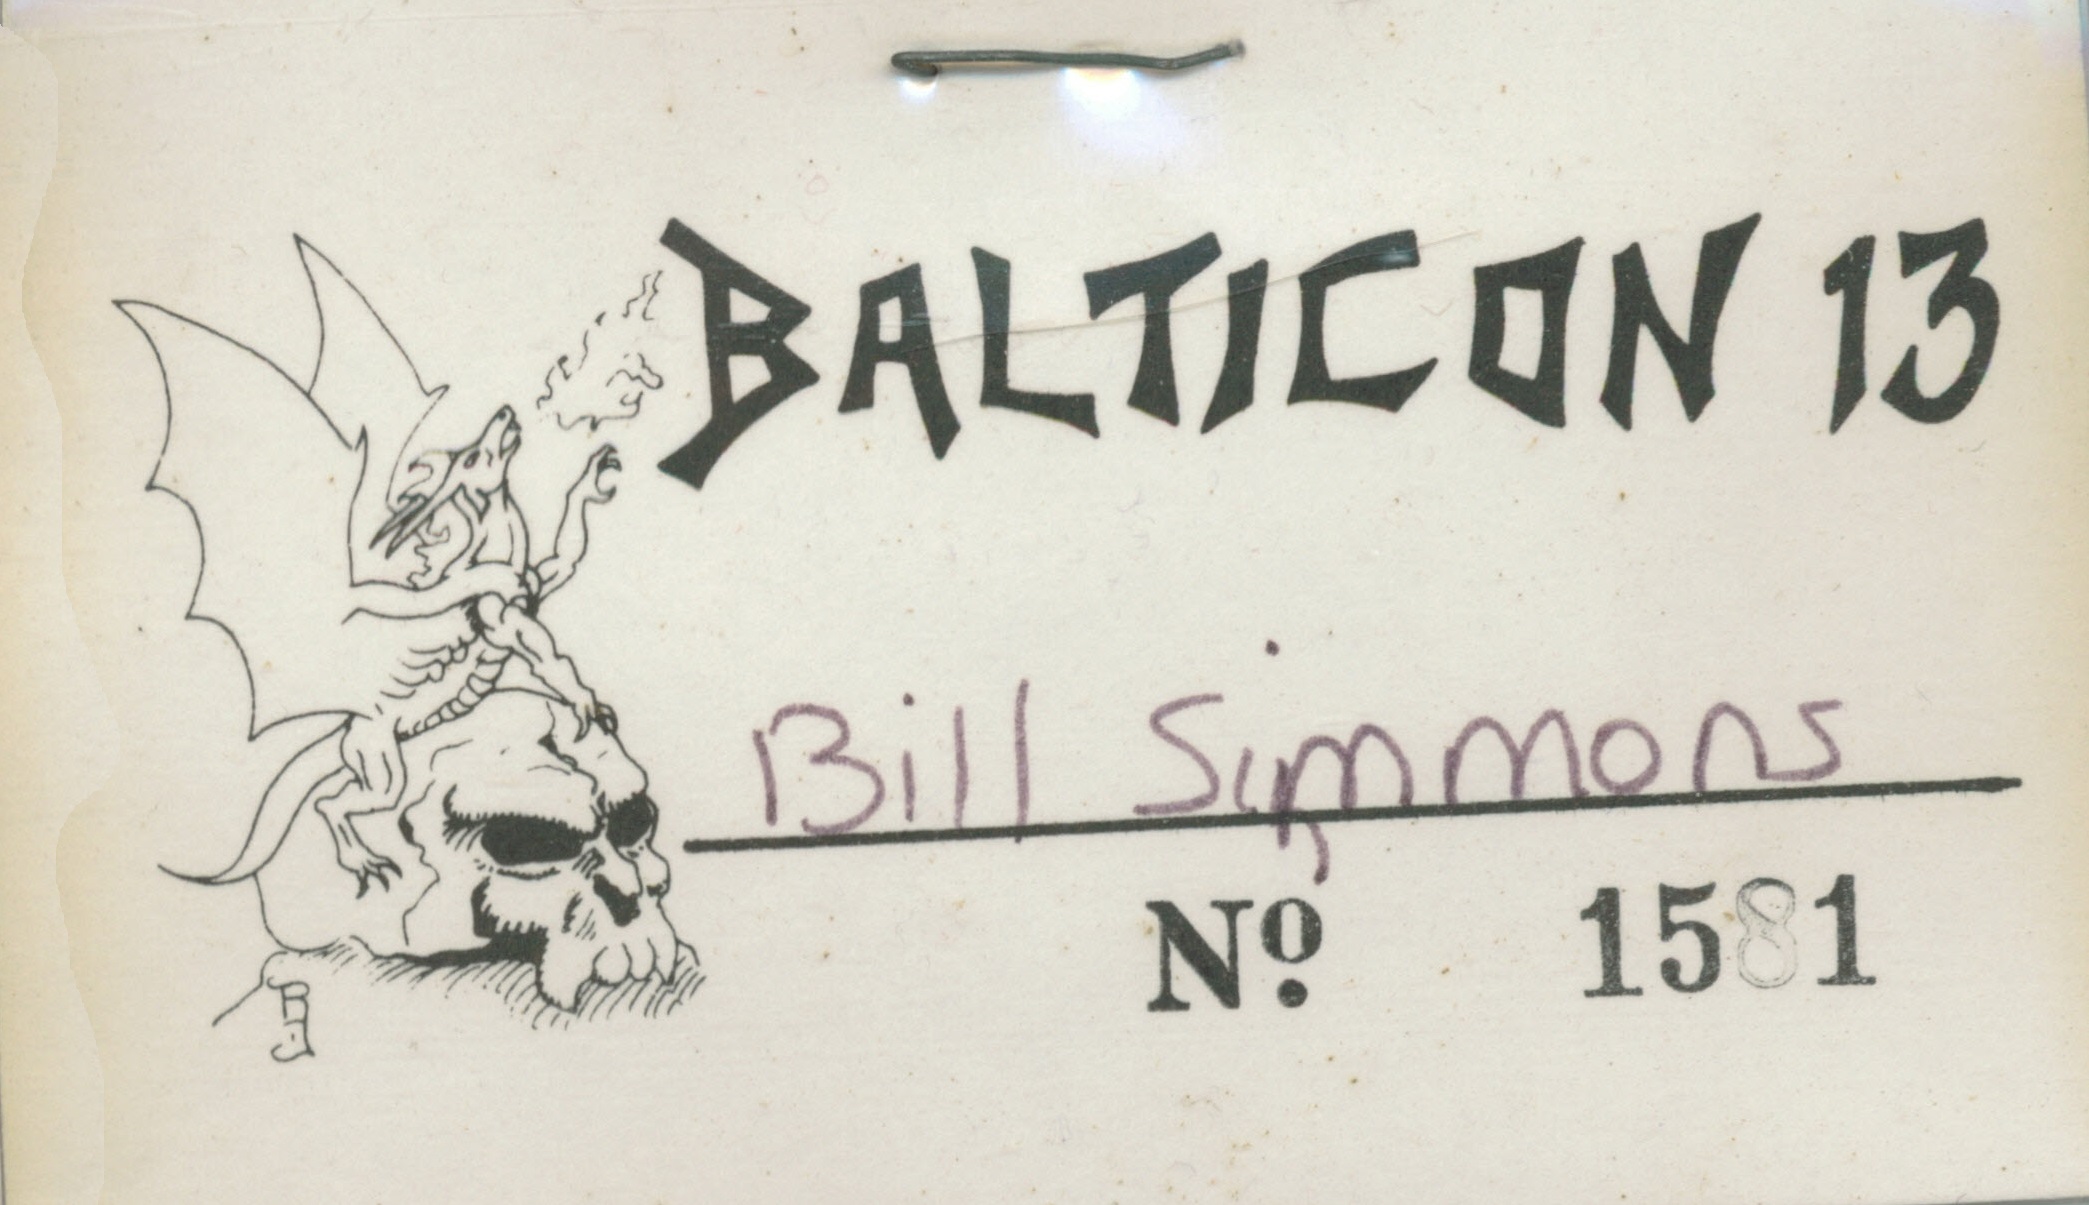 BALTICON 13
Bill Simmons
Nº 1581